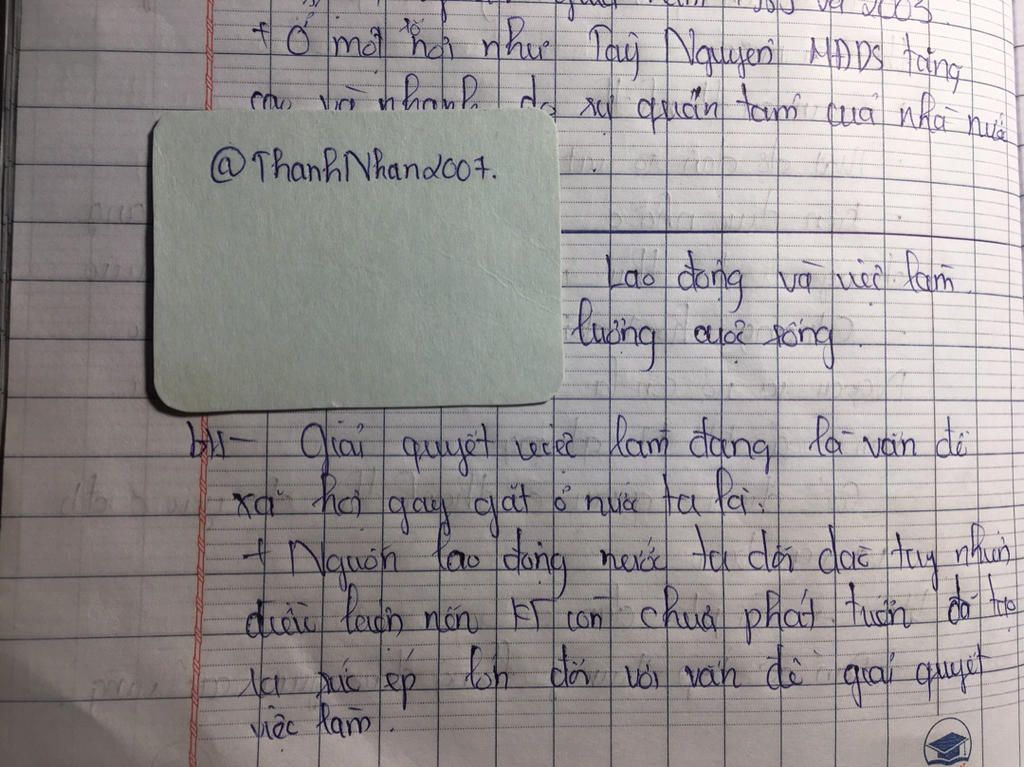 và 2003.
+ Ở một nơi như Tây Nguyên MĐDS tăng
cao và nhanh do sự quan tâm của nhà nước
@ThanhNhan2007.
Lao động và việc làm
lượng cuộc sống
bt1- Giải quyết việc làm đang là vấn đề
xã hội gay gắt ở nước ta là:
+ Nguồn lao động nước ta dồi dào tuy nhiên
điều kiện nền KT còn chưa phát triển đã tạo
ra sức ép lớn đối với vấn đề giải quyết
việc làm.